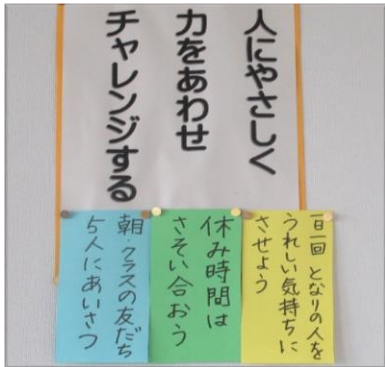 人にやさしく
力をあわせ
チャレンジする
一日一回 となりの人を
うれしい気持ちに
させよう
休み時間は
さそい合おう
朝・クラスの友だち
5人にあいさつ